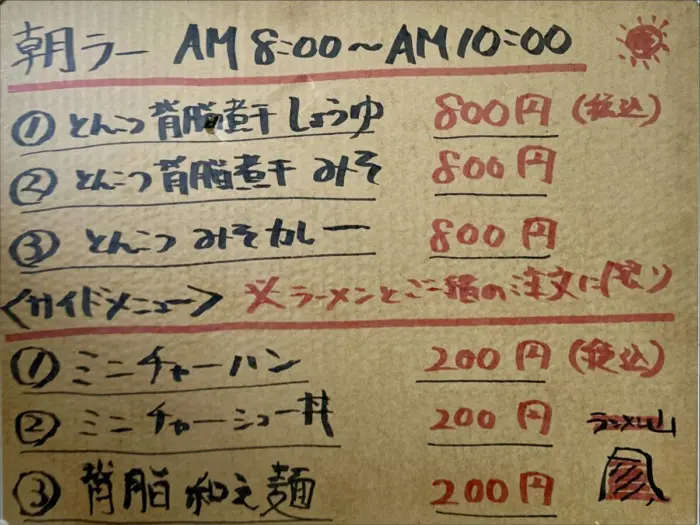 朝ラー AM 8:00～AM 10:00
① とんこつ背脂煮干しょうゆ 800円 (税込)
② とんこつ背脂煮干みそ 800円
③ とんこつみそカレー 800円
〈サイドメニュー〉 ※ラーメンとご一緒の注文に限り
① ミニチャーハン 200円 (税込)
② ミニチャーシュー丼 200円
③ 背脂和え麺 200円